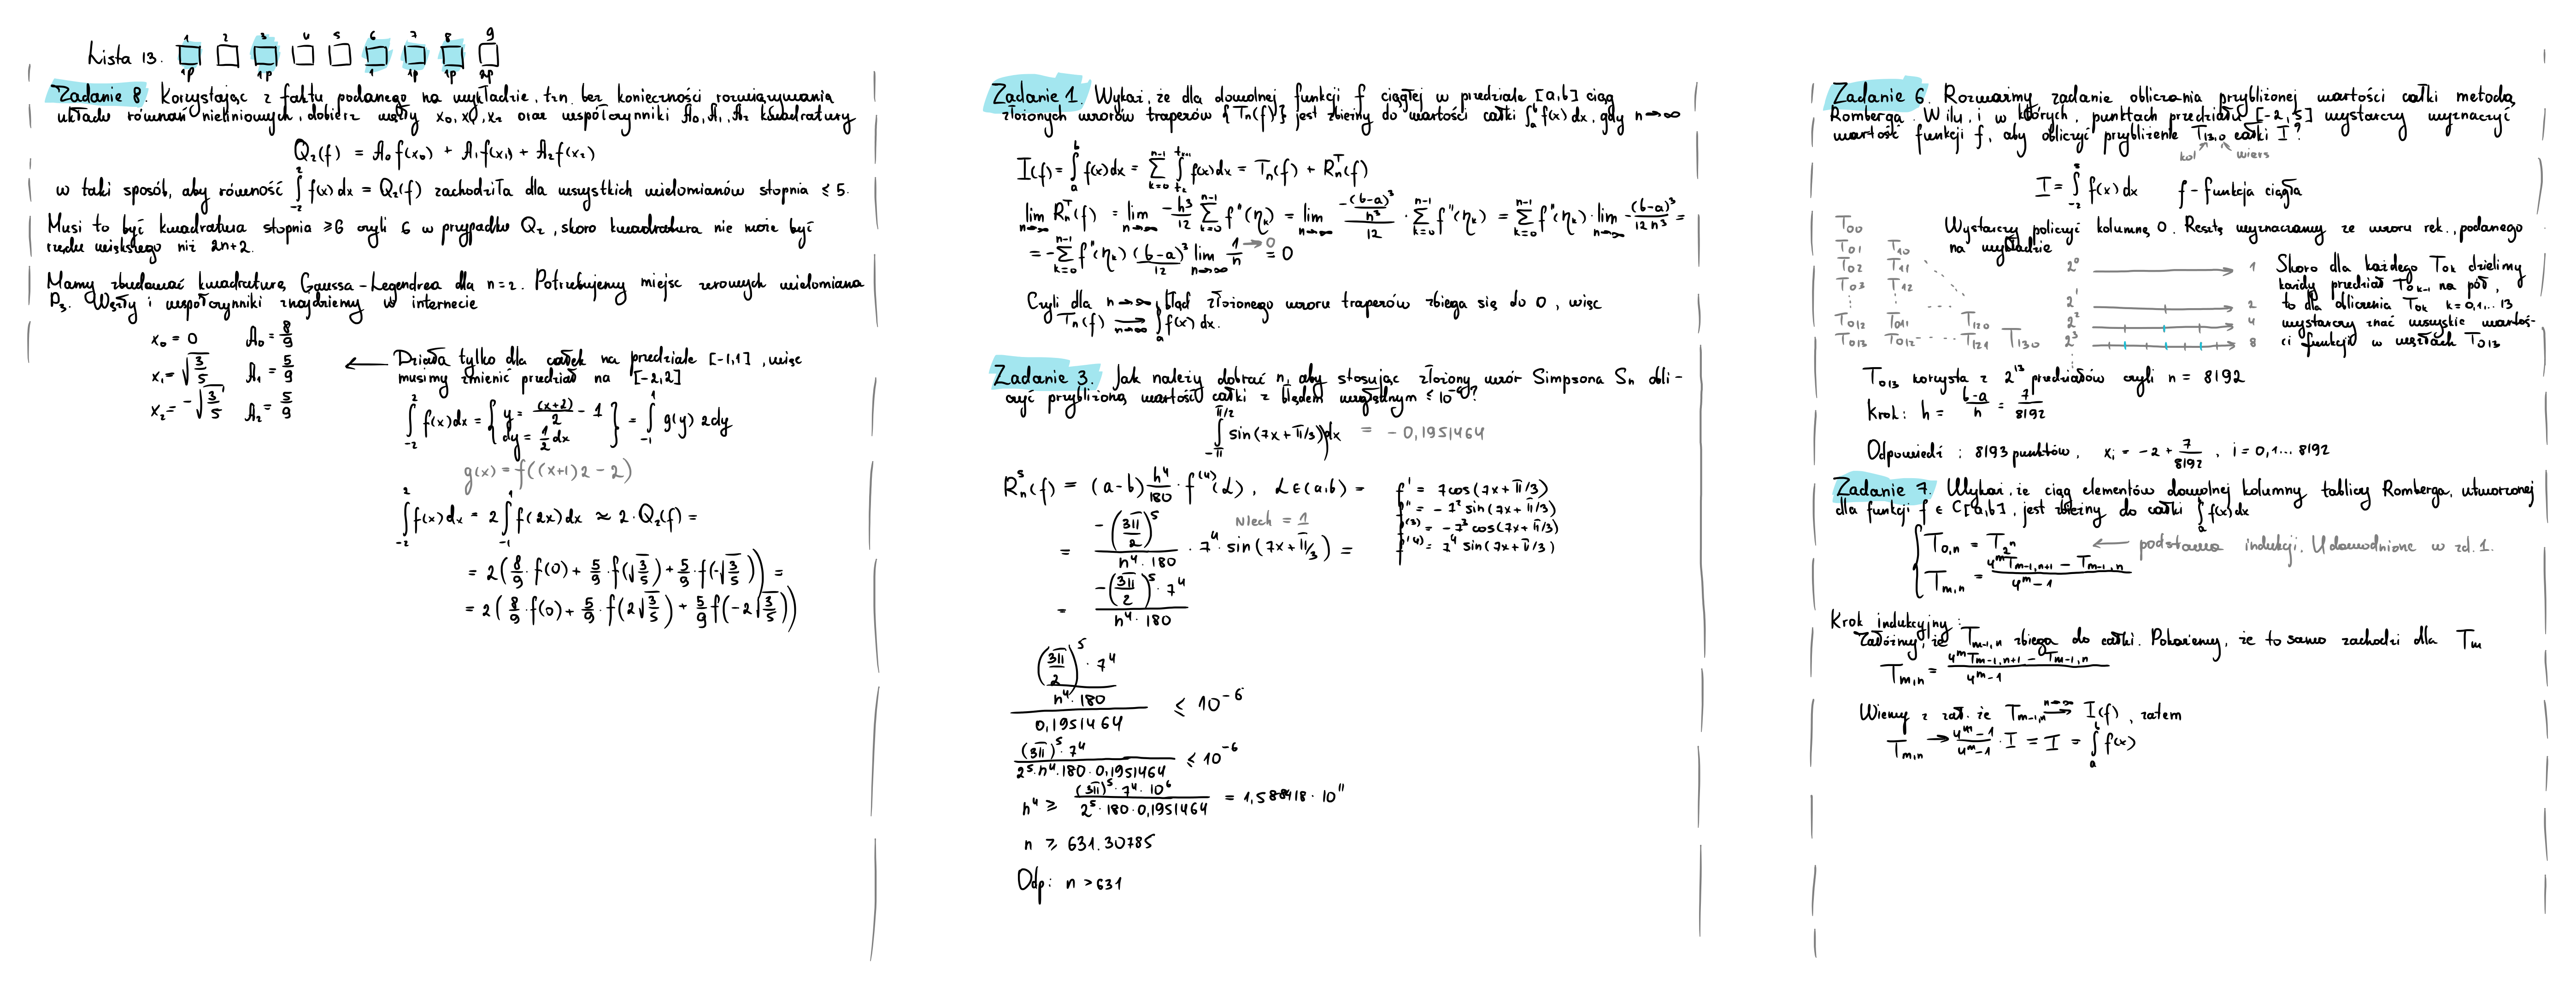 Lista 13. 1 2 3 4 5 6 7 8 9
1p 1p 1 1p 1p 2p
Zadanie 8. Korzystając z faktu podanego na wykładzie, tzn. bez konieczności rozwiązywania
układu równań nieliniowych, dobierz węzły x₀, x₁, x₂ oraz współczynniki A₀, A₁, A₂ kwadratury
Q₂(f) = A₀f(x₀) + A₁f(x₁) + A₂f(x₂)
w taki sposób, aby równość ∫_{-2}^{2} f(x)dx = Q₂(f) zachodziła dla wszystkich wielomianów stopnia ≤ 5.
Musi to być kwadratura stopnia ≥6 czyli 6 w przypadku Q₂, skoro kwadratura nie może być
rzędu większego niż 2n+2.
Mamy zbudować kwadraturę Gaussa-Legendrea dla n=2. Potrzebujemy miejsc zerowych wielomiana
P₃. Węzły i współczynniki znajdziemy w internecie
x₀ = 0 A₀ = 8/9
x₁ = √(3/5) A₁ = 5/9
x₂ = -√(3/5) A₂ = 5/9
← Działa tylko dla całek na przedziale [-1,1], więc
musimy zmienić przedział na [-2,2]
∫_{-2}^{2} f(x)dx = { y = (x+2)/2 - 1 dy = 1/2 dx } = ∫_{-1}^{1} g(y) 2dy
g(x) = f((x+1)2 - 2)
∫_{-2}^{2} f(x)dx = 2∫_{-1}^{1} f(2x)dx ≈ 2·Q₂(f) =
= 2(8/9·f(0) + 5/9·f(√(3/5)) + 5/9·f(-√(3/5))) =
= 2(8/9·f(0) + 5/9·f(2√(3/5)) + 5/9 f(-2√(3/5)))
Zadanie 1. Wykaż, że dla dowolnej funkcji f ciągłej w przedziale [a,b] ciąg
złożonych wzorów trapezów {Tₙ(f)} jest zbieżny do wartości całki ∫_{a}^{b} f(x)dx, gdy n→∞
I(f) = ∫_{a}^{b} f(x)dx = Σ_{k=0}^{n-1} ∫_{t_k}^{t_{k+1}} f(x)dx = Tₙ(f) + Rₙᵀ(f)
lim_{n→∞} Rₙᵀ(f) = lim_{n→∞} -h³/12 Σ_{k=0}^{n-1} f''(η_k) = lim_{n→∞} (-(b-a)³/n³)/12 · Σ_{k=0}^{n-1} f''(η_k) = Σ_{k=0}^{n-1} f''(η_k) · lim_{n→∞} -(b-a)³/12n³ =
= -Σ_{k=0}^{n-1} f''(η_k) (b-a)³/12 lim_{n→∞} 1/n → 0 = 0
Czyli dla n→∞ błąd złożonego wzoru trapezów zbiega się do 0, więc
Tₙ(f) →_{n→∞} ∫_{a}^{b} f(x)dx.
Zadanie 3. Jak należy dobrać n, aby stosując złożony wzór Simpsona Sₙ obli-
czyć przybliżoną wartość całki z błędem względnym ≤ 10⁻⁶?
∫_{-π}^{π/2} sin(7x + π/3)dx = -0,1951464
Rₙˢ(f) = (a-b) h⁴/180 · f⁽⁴⁾(α), α∈(a,b) =
f' = 7cos(7x + π/3)
f'' = -7² sin(7x + π/3)
f⁽³⁾ = -7³ cos(7x + π/3)
f⁽⁴⁾ = 7⁴ sin(7x + π/3)
Niech = 1
= -(3π/2)⁵/(n⁴·180) · 7⁴ sin(7x + π/3) =
= -(3π/2)⁵·7⁴/(n⁴·180)
((3π/2)⁵·7⁴/(n⁴·180))/0,1951464 ≤ 10⁻⁶
(3π)⁵·7⁴/(2⁵·n⁴·180·0,1951464) ≤ 10⁻⁶
n⁴ ≥ (3π)⁵·7⁴·10⁶/(2⁵·180·0,1951464) = 1,588418·10¹¹
n ≥ 631.30785
Odp: n > 631
Zadanie 6. Rozważmy zadanie obliczania przybliżonej wartości całki metodą
Romberga. W ilu, i w których, punktach przedziału [-2,5] wystarczy wyznaczyć
wartość funkcji f, aby obliczyć przybliżenie T₁₃,₀ całki I?
kol wiersz
I = ∫_{-2}^{5} f(x)dx f - funkcja ciągła
Wystarczy policzyć kolumnę 0. Resztę wyznaczamy ze wzoru rek., podanego
na wykładzie
T₀₀
T₀₁ T₁₀
T₀₂ T₁₁
T₀₃ T₁₂
T₀₁₂ T₀₁₁ T₁₂₀
T₀₁₃ T₀₁₂ T₁₂₁ T₁₃₀
2⁰ 1
2¹ 2
2² 4
2³ 8
Skoro dla każdego T₀ₖ dzielimy
każdy przedział T₀ₖ₋₁ na pół,
to dla obliczenia T₀ₖ k=0,1...13
wystarczy znać wszyskie wartoś-
ci funkcji w węzłach T₀₁₃
T₀₁₃ korzysta z 2¹³ przedziałów czyli n = 8192
Krok: h = (b-a)/n = 7/8192
Odpowiedź: 8193 punktów, xᵢ = -2 + 7/8192, i = 0,1...8192
Zadanie 7. Wykaż, że ciąg elementów dowolnej kolumny tablicy Romberga, utworzonej
dla funkcji f ∈ C[a,b], jest zbieżny do całki ∫_{a}^{b} f(x)dx
T₀,ₙ = T_{2ⁿ} ← podstawa indukcji. Udowodnione w zd. 1.
Tₘ,ₙ = (4ᵐTₘ₋₁,ₙ₊₁ - Tₘ₋₁,ₙ)/(4ᵐ-1)
Krok indukcyjny:
Załóżmy, że Tₘ₋₁,ₙ zbiega do całki. Pokażemy, że to samo zachodzi dla Tₘ
Tₘ,ₙ = (4ᵐTₘ₋₁,ₙ₊₁ - Tₘ₋₁,ₙ)/(4ᵐ-1)
Wiemy z zał. że Tₘ₋₁,ₙ →^{n→∞} I(f), zatem
Tₘ,ₙ → (4ᵐ-1)/(4ᵐ-1) · I = I = ∫_{a}^{b} f(x)